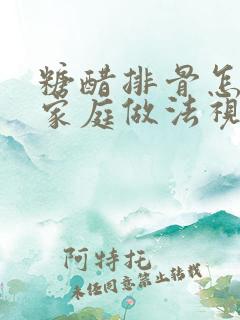 糖醋排骨怎
家庭做法视
阿特托
未经同意禁止转载